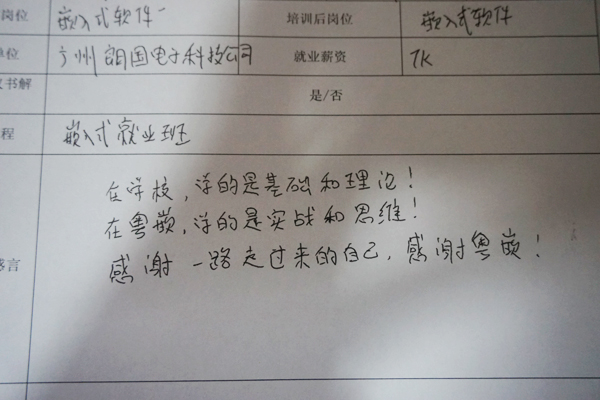 岗位 嵌入式软件 培训后岗位 嵌入式软件
单位 广州朗国电子科技公司 就业薪资 7K
书解 是/否
程 嵌入式就业班
在学校，学的是基础和理论！
在粤嵌，学的是实战和思维！
感言 感谢一路走过来的自己，感谢粤嵌！